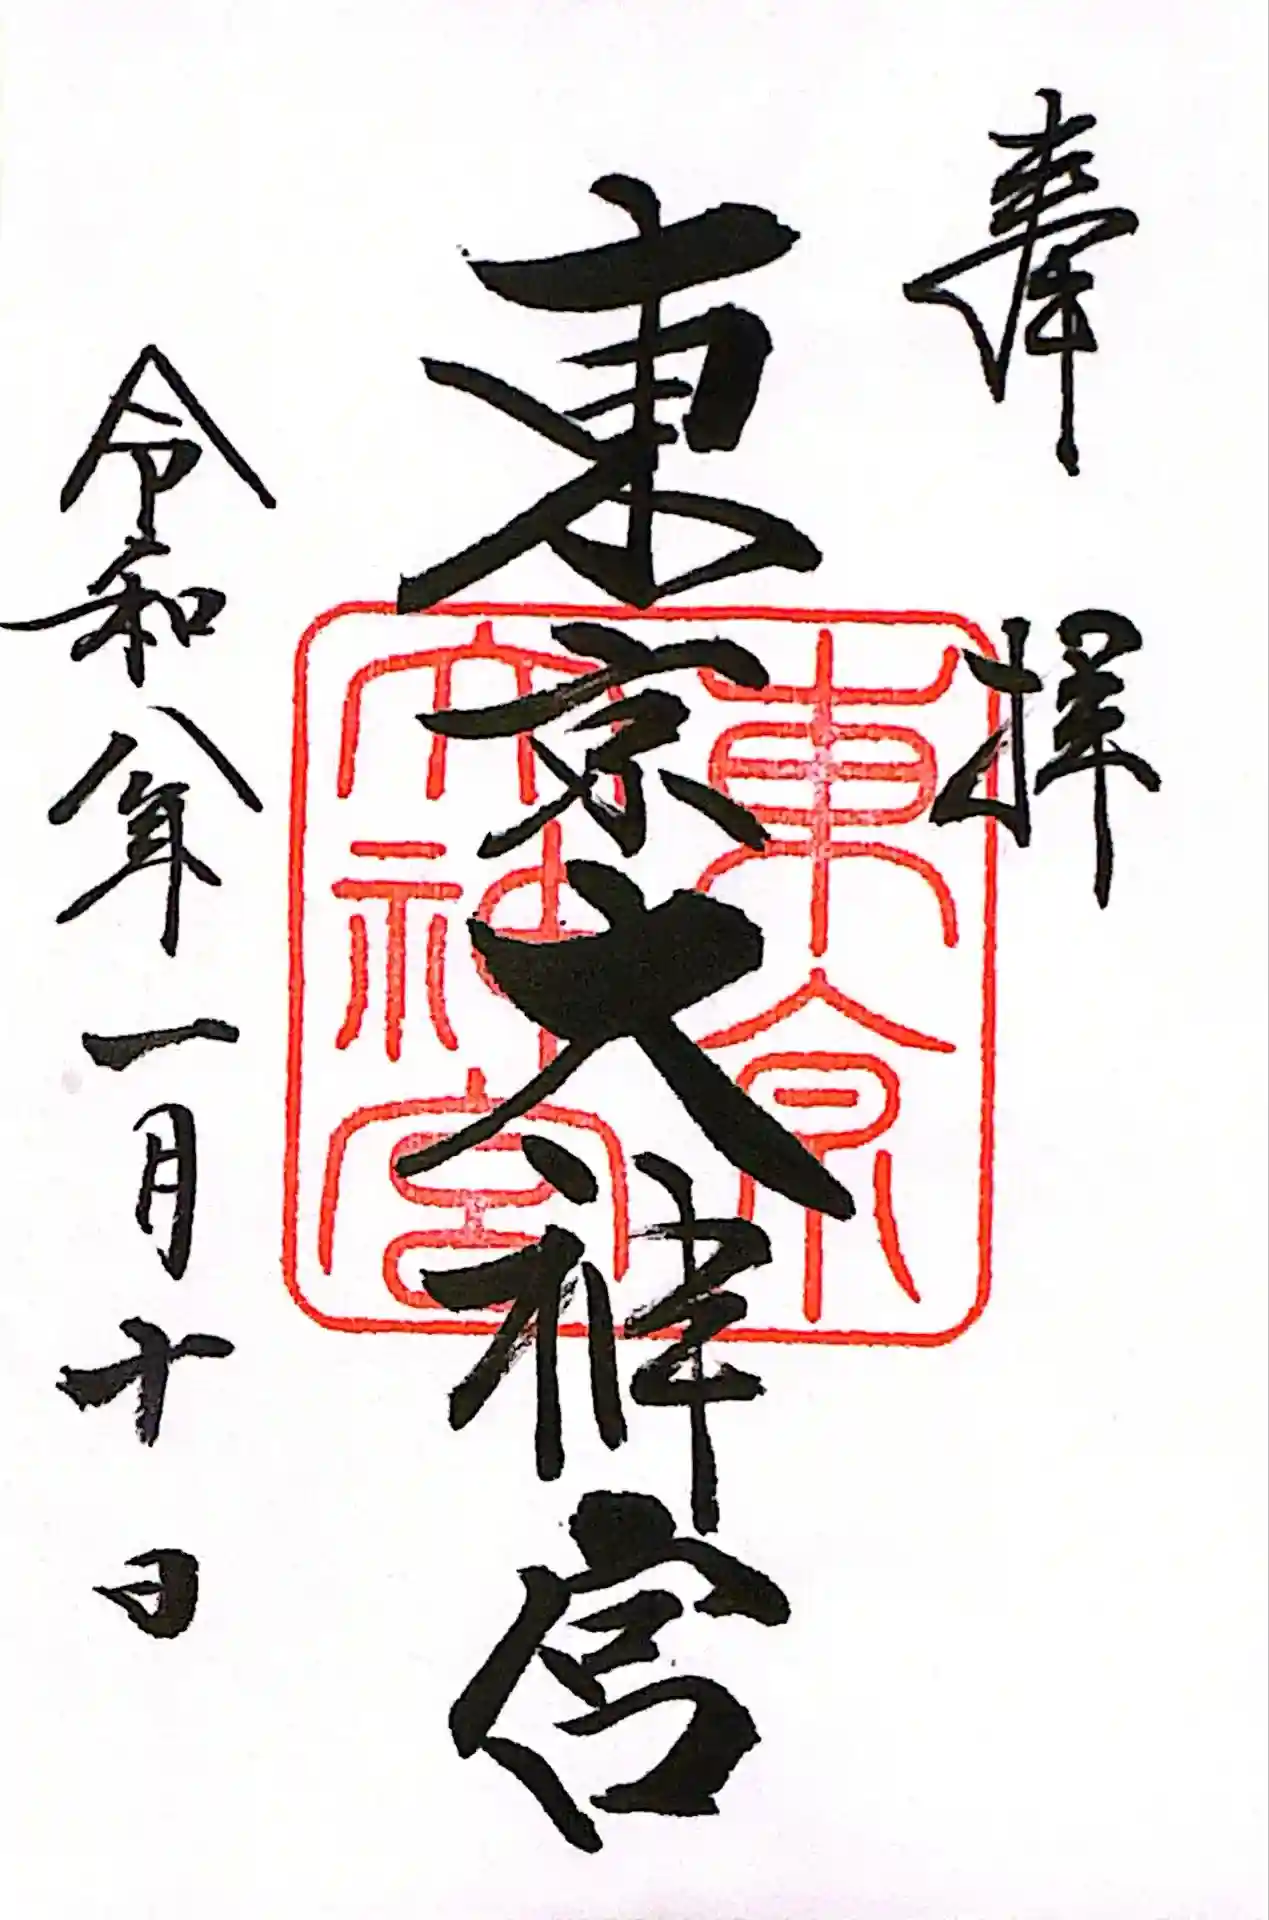 奉拝
東京大神宮
東京
大神宮
令和八年一月十日